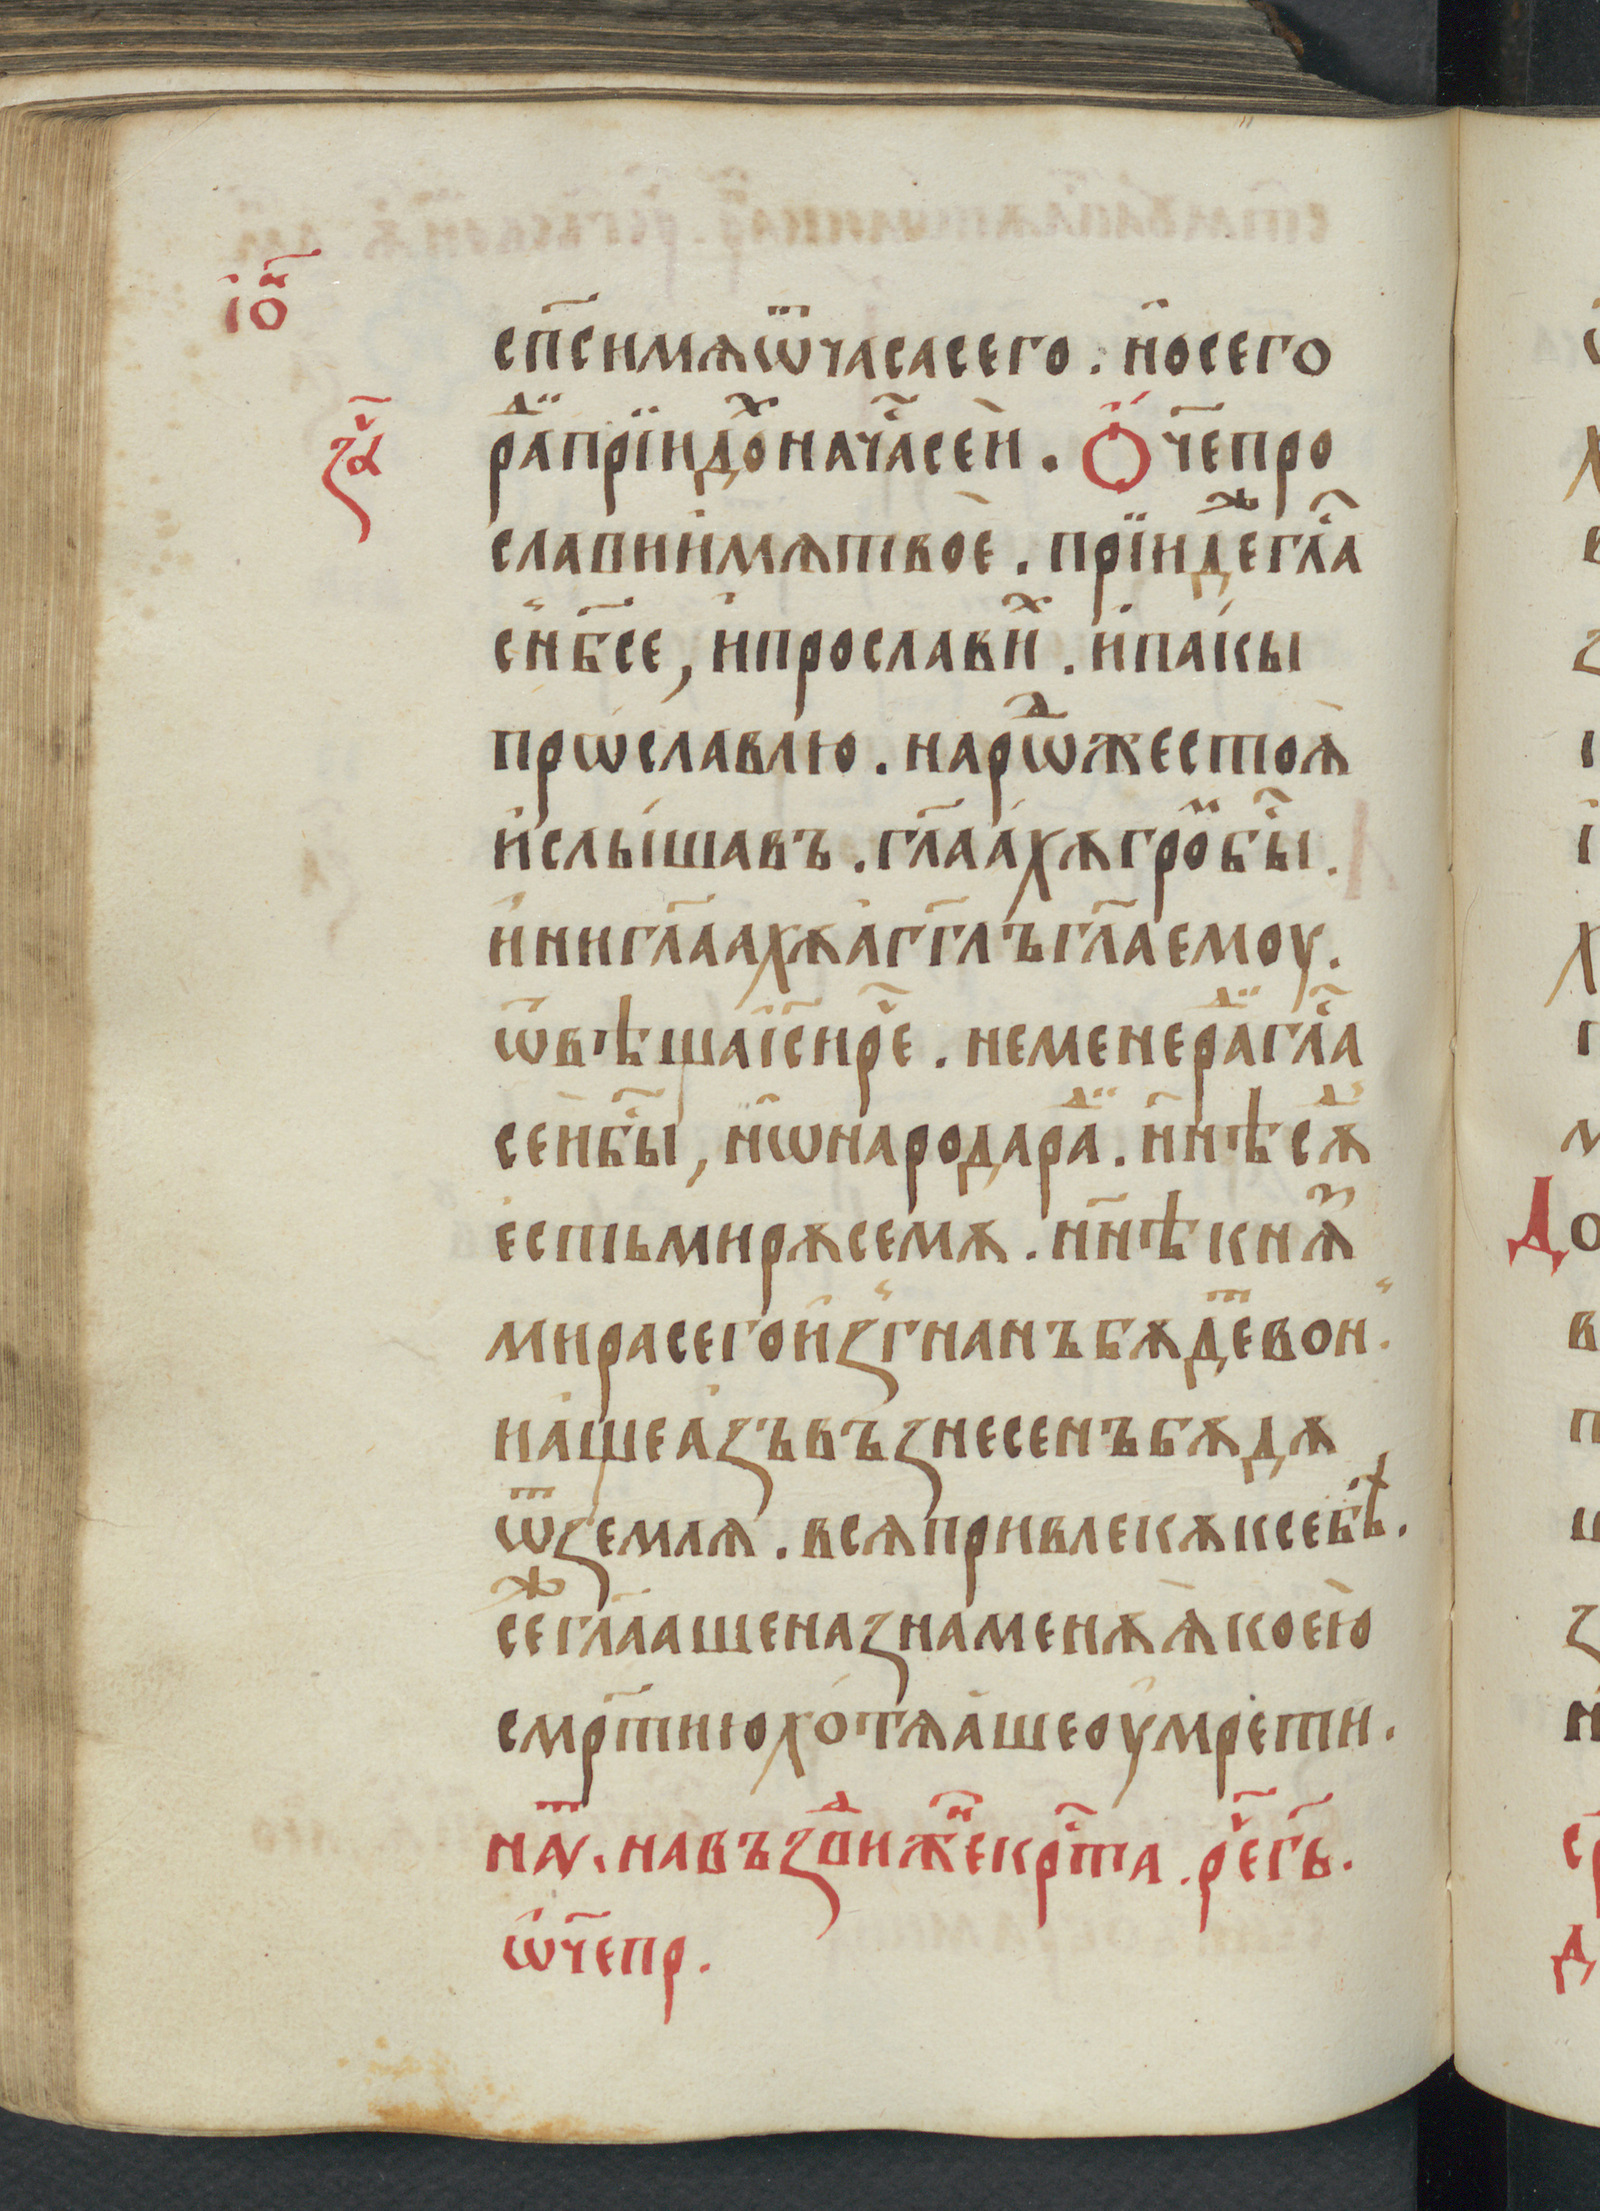 і҆ѡ҃
сп҃сиმѧѿчасасего . но҆сего
ра⁣ⷣпрїидо⁣ⷯначⷭ҇асеи҆ . Ѻ҆ч҃епро
з҃а
славиимѧтвое҆ . прїиде⁣ⷤглⷭ҇а
сн҆б҃се , и҆прославиⷯ . и҆пакы
прѡславлю . нарѡⷣжестоѧ҆
и҆слышавъ . гл҃аахѫгро⁣ⷨбⷭ҇ы .
и҆ниигл҃аахѫа҆гг҃лъгл҃аемоу .
ѿвѣщаі҆с҃ирⷱ҇е . неменера⁣ⷣглⷭ҇а
сеи҆бⷭ҇ы , нѡ҆народара⁣ⷣ . нн҃ѣсѫⷣ
е҆стьмирѫсемѫ . нн҃ѣкнѧⷥ
мирасегои҆згнанъбѫдеⷮвон .
иа҆щеа҆зъвъзнесенъбѫдѫ
ѿземлѧ . всѧпривлекѫксебѣ .
се⁣ⷤгл҃аащеназнаменѫѧ҆коею҆
см҃ртиюхотѧа҆шеоумрети .
наⷮ . навъзⷣвиже⁣ⷩ҇екрⷭ҇та . рⷱ҇егь҃ .
ѡ҆ч҃епр .